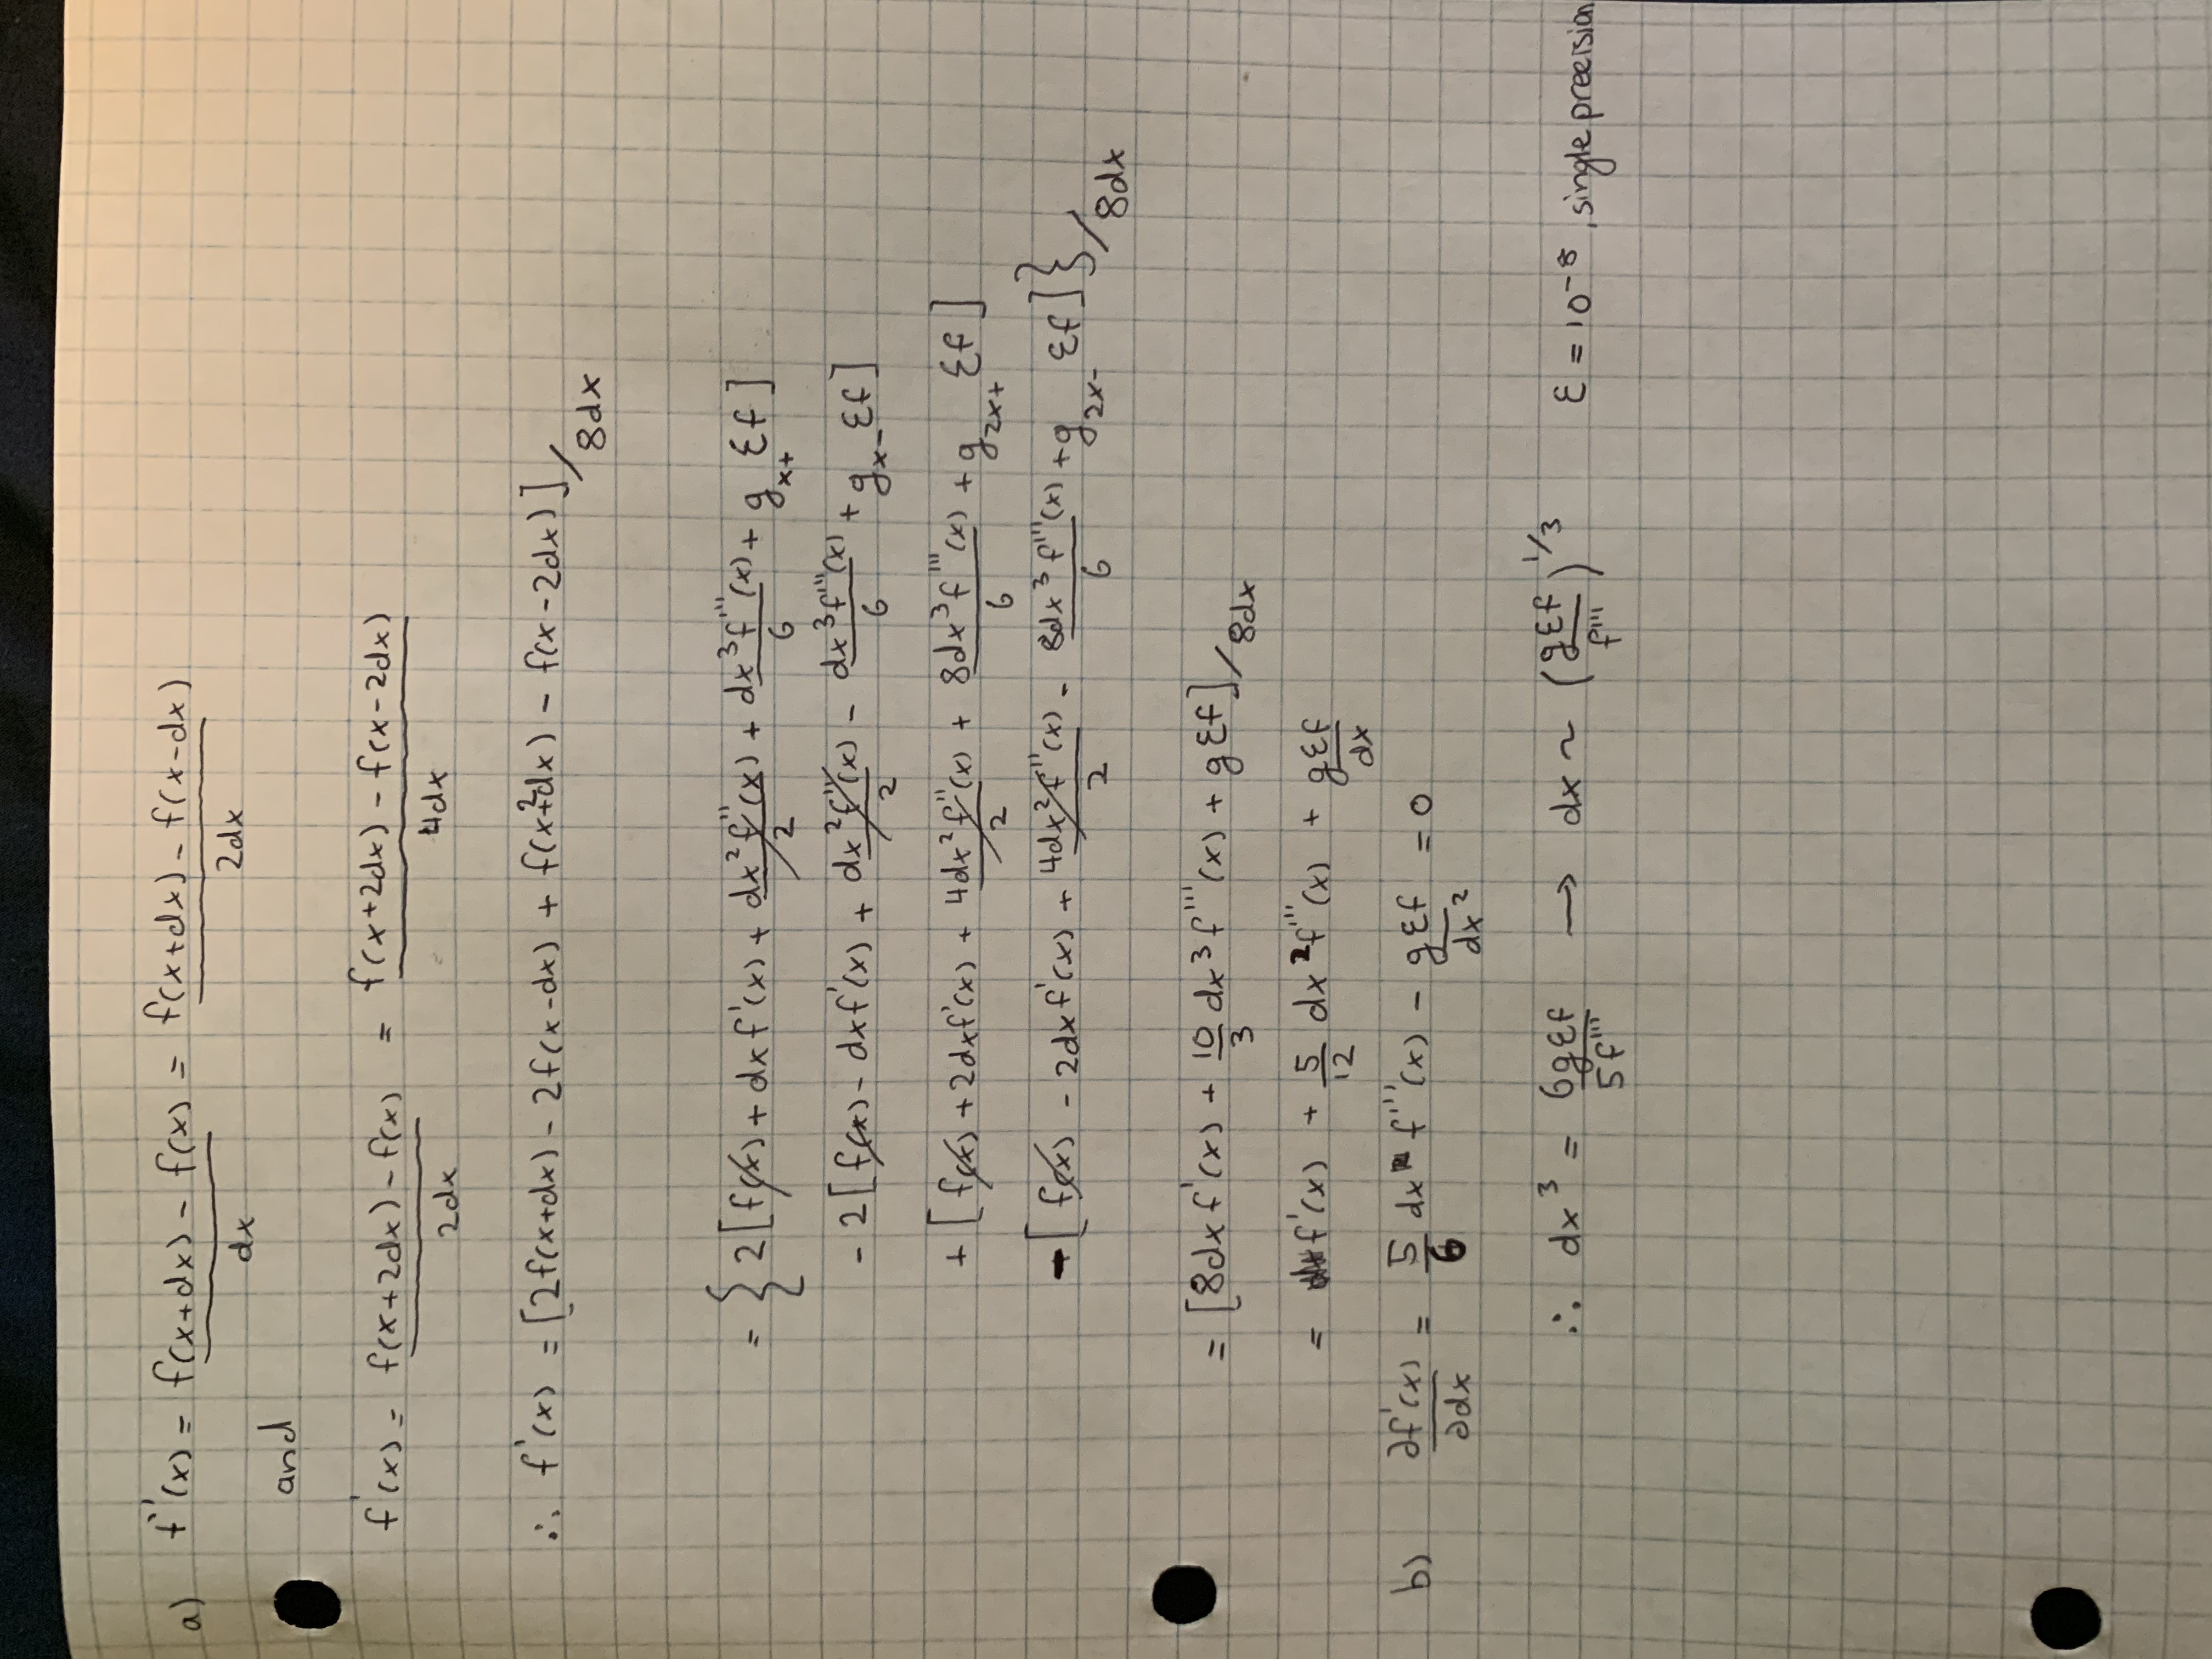 a) f'(x) = f(x+dx) - f(x) / dx = f(x+dx) - f(x-dx) / 2dx
and
f'(x) = f(x+2dx) - f(x) / 2dx = f(x+2dx) - f(x-2dx) / 4dx
∴ f'(x) = [2f(x+dx) - 2f(x-dx) + f(x+2dx) - f(x-2dx)] / 8dx
= { 2[f(x) + dx f'(x) + dx² f''(x) / 2 + dx³ f'''(x) / 6 + g_x+ εf]
- 2[f(x) - dx f'(x) + dx² f''(x) / 2 - dx³ f'''(x) / 6 + g_x- εf]
+ [f(x) + 2dx f'(x) + 4dx² f''(x) / 2 + 8dx³ f'''(x) / 6 + g_2x+ εf]
- [f(x) - 2dx f'(x) + 4dx² f''(x) / 2 - 8dx³ f'''(x) / 6 + g_2x- εf] } / 8dx
= [8dx f'(x) + 10/3 dx³ f'''(x) + gεf] / 8dx
= f'(x) + 5/12 dx² f'''(x) + gεf / dx
b) ∂f'(x) / ∂dx = 5/6 dx f'''(x) - gεf / dx² = 0
∴ dx³ = 6gεf / 5f''' → dx ~ (gεf / f''')^1/3 ε = 10⁻⁸, single precision